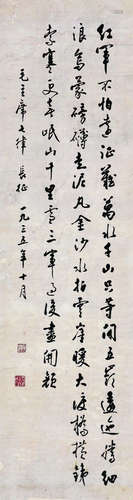 红军不怕远征难万水千山只等闲五岭逶迤腾细
浪乌蒙磅礴走泥丸金沙水拍云崖暖大渡桥横铁
索寒更喜岷山千里雪三军过后尽开颜
毛主席七律长征 一九三五年十月